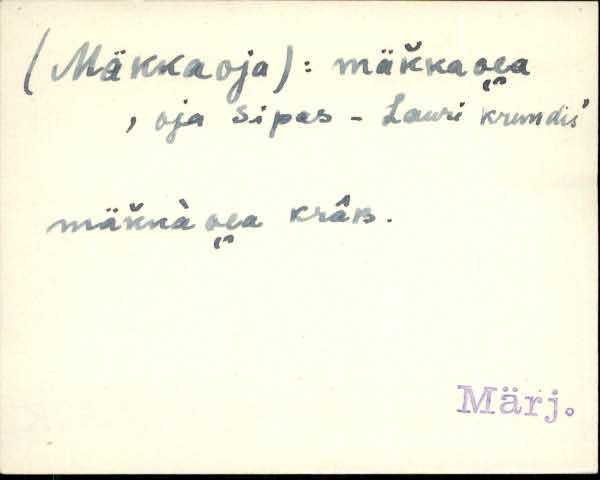 (Mäkkaoja): mäk̆kaoea
, oja Sipas - Lauri krundis'
mäk̆kàoea krâв.
Märj.